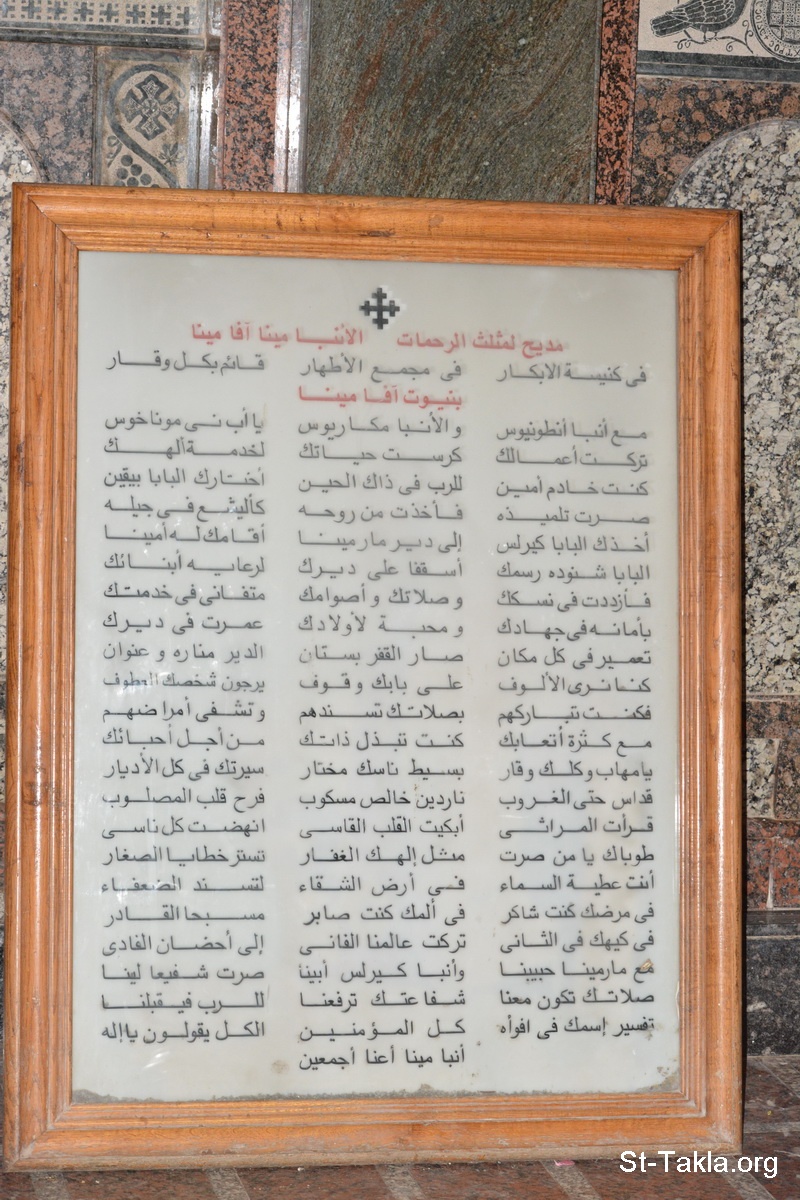 مديح لمثلث الرحمات الأنبا مينا آفا مينا
فى كنيسة الابكار فى مجمع الأطهار قائم بكل وقار
بنيوت آفا مينا
مع أنبا أنطونيوس والأنبا مكاريوس يا أب نى موناخوس
تركت أعمالك كرست حياتك لخدمة ألهك
كنت خادم أمين للرب فى ذاك الحين أختارك البابا بيقين
صرت تلميذه فأخذت من روحه كأليشع فى جيله
أخذك البابا كيرلس إلى دير مارمينا أقامك له أمينا
البابا شنوده رسمك أسقفا على ديرك لرعايه أبنائك
فأزددت فى نسكك وصلاتك وأصوامك متفانى فى خدمتك
بأمانه فى جهادك ومحبة لأولادك عمرت فى ديرك
تعمير فى كل مكان صار القفر بستان الدير مناره وعنوان
كنا نرى الألوف على بابك وقوف يرجون شخصك العطوف
فكنت تباركهم بصلاتك تسندهم وتشفى أمراضهم
مع كثرة أتعابك كنت تبذل ذاتك من أجل أحبائك
يامهاب وكلك وقار بسيط ناسك مختار سيرتك فى كل الأديار
قداس حتى الغروب ناردين خالص مسكوب فرح قلب المصلوب
قرأت المراثى أبكيت القلب القاسى انهضت كل ناسى
طوباك يا من صرت مثل إلهك الغفار تستر خطايا الصغار
أنت عطية السماء فى أرض الشقاء لتسند الضعفاء
فى مرضك كنت شاكر فى ألمك كنت صابر مسبحا القادر
فى كيهك فى الثانى تركت عالمنا الفانى إلى أحضان الفادى
مع مارمينا حبيبنا وأنبا كيرلس أبينا صرت شفيعا لينا
صلاتك تكون معنا شفاعتك ترفعنا للرب فيقبلنا
تفسير إسمك فى افوأه كل المؤمنين الكل يقولون ياإله
أنبا مينا أعنا أجمعين
St-Takla.org